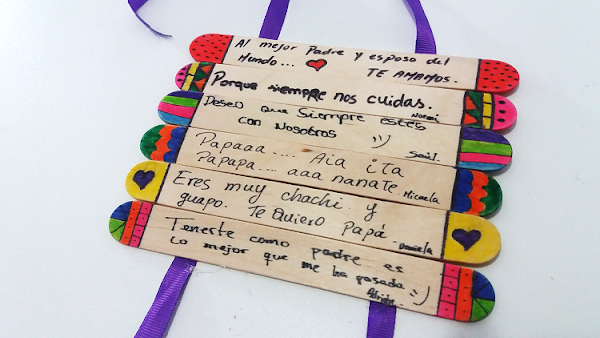 Al mejor Padre y esposo del
Mundo... TE AMAMOS.
Porque siempre nos cuidas.
Noemi
Deseo que siempre estés
con Nosotros :)
Saúl.
Papaaa.... Aia ita
Papapa.... aaa nanate.
Micaela
Eres muy chachi. y
guapo. Te quiero Papá.
Daniela
Tenerte como padre es
lo mejor que me ha pasado. :)